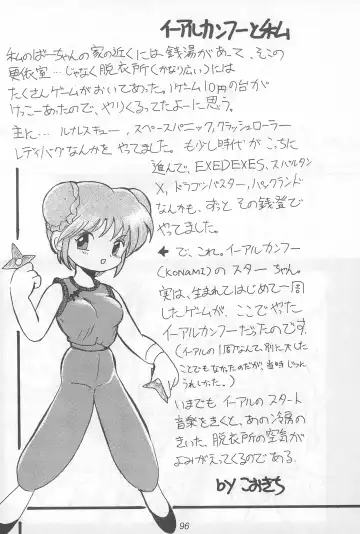 イーアルカンフーと私
私のばーちゃんの家の近くには銭湯があって、そこの
更衣室…じゃなく脱衣所(かなり広い)には
たくさんゲームがおいてあった。1ゲーム10円の台が
けっこーあったので、やりくるってたよーに思う。
主に…ルナレスキュー,スペースパニック,クラッシュローラー
レディバグなんかをやってました。も少し時代がこっちに
進んで、EXEDEXES,スパルタン
X,ドラゴンバスター,パックランド
なんかも、ずっとその銭登で
やってました。
← で、これ。イーアルカンフー
(KONAMI)のスターちゃん。
実は、生まれてはじめて一周
したゲームが、ここでやった
イーアルカンフーだったのです。
(イーアルの1周なんて、別に大した
ことでもなかったのだが、当時じつに
うれしかった。)
いまでもイーアルのスタート
音楽をきくと、あの冷房の
きいた、脱衣所の空気が
よみがえってくるのである.
by こおきち
96